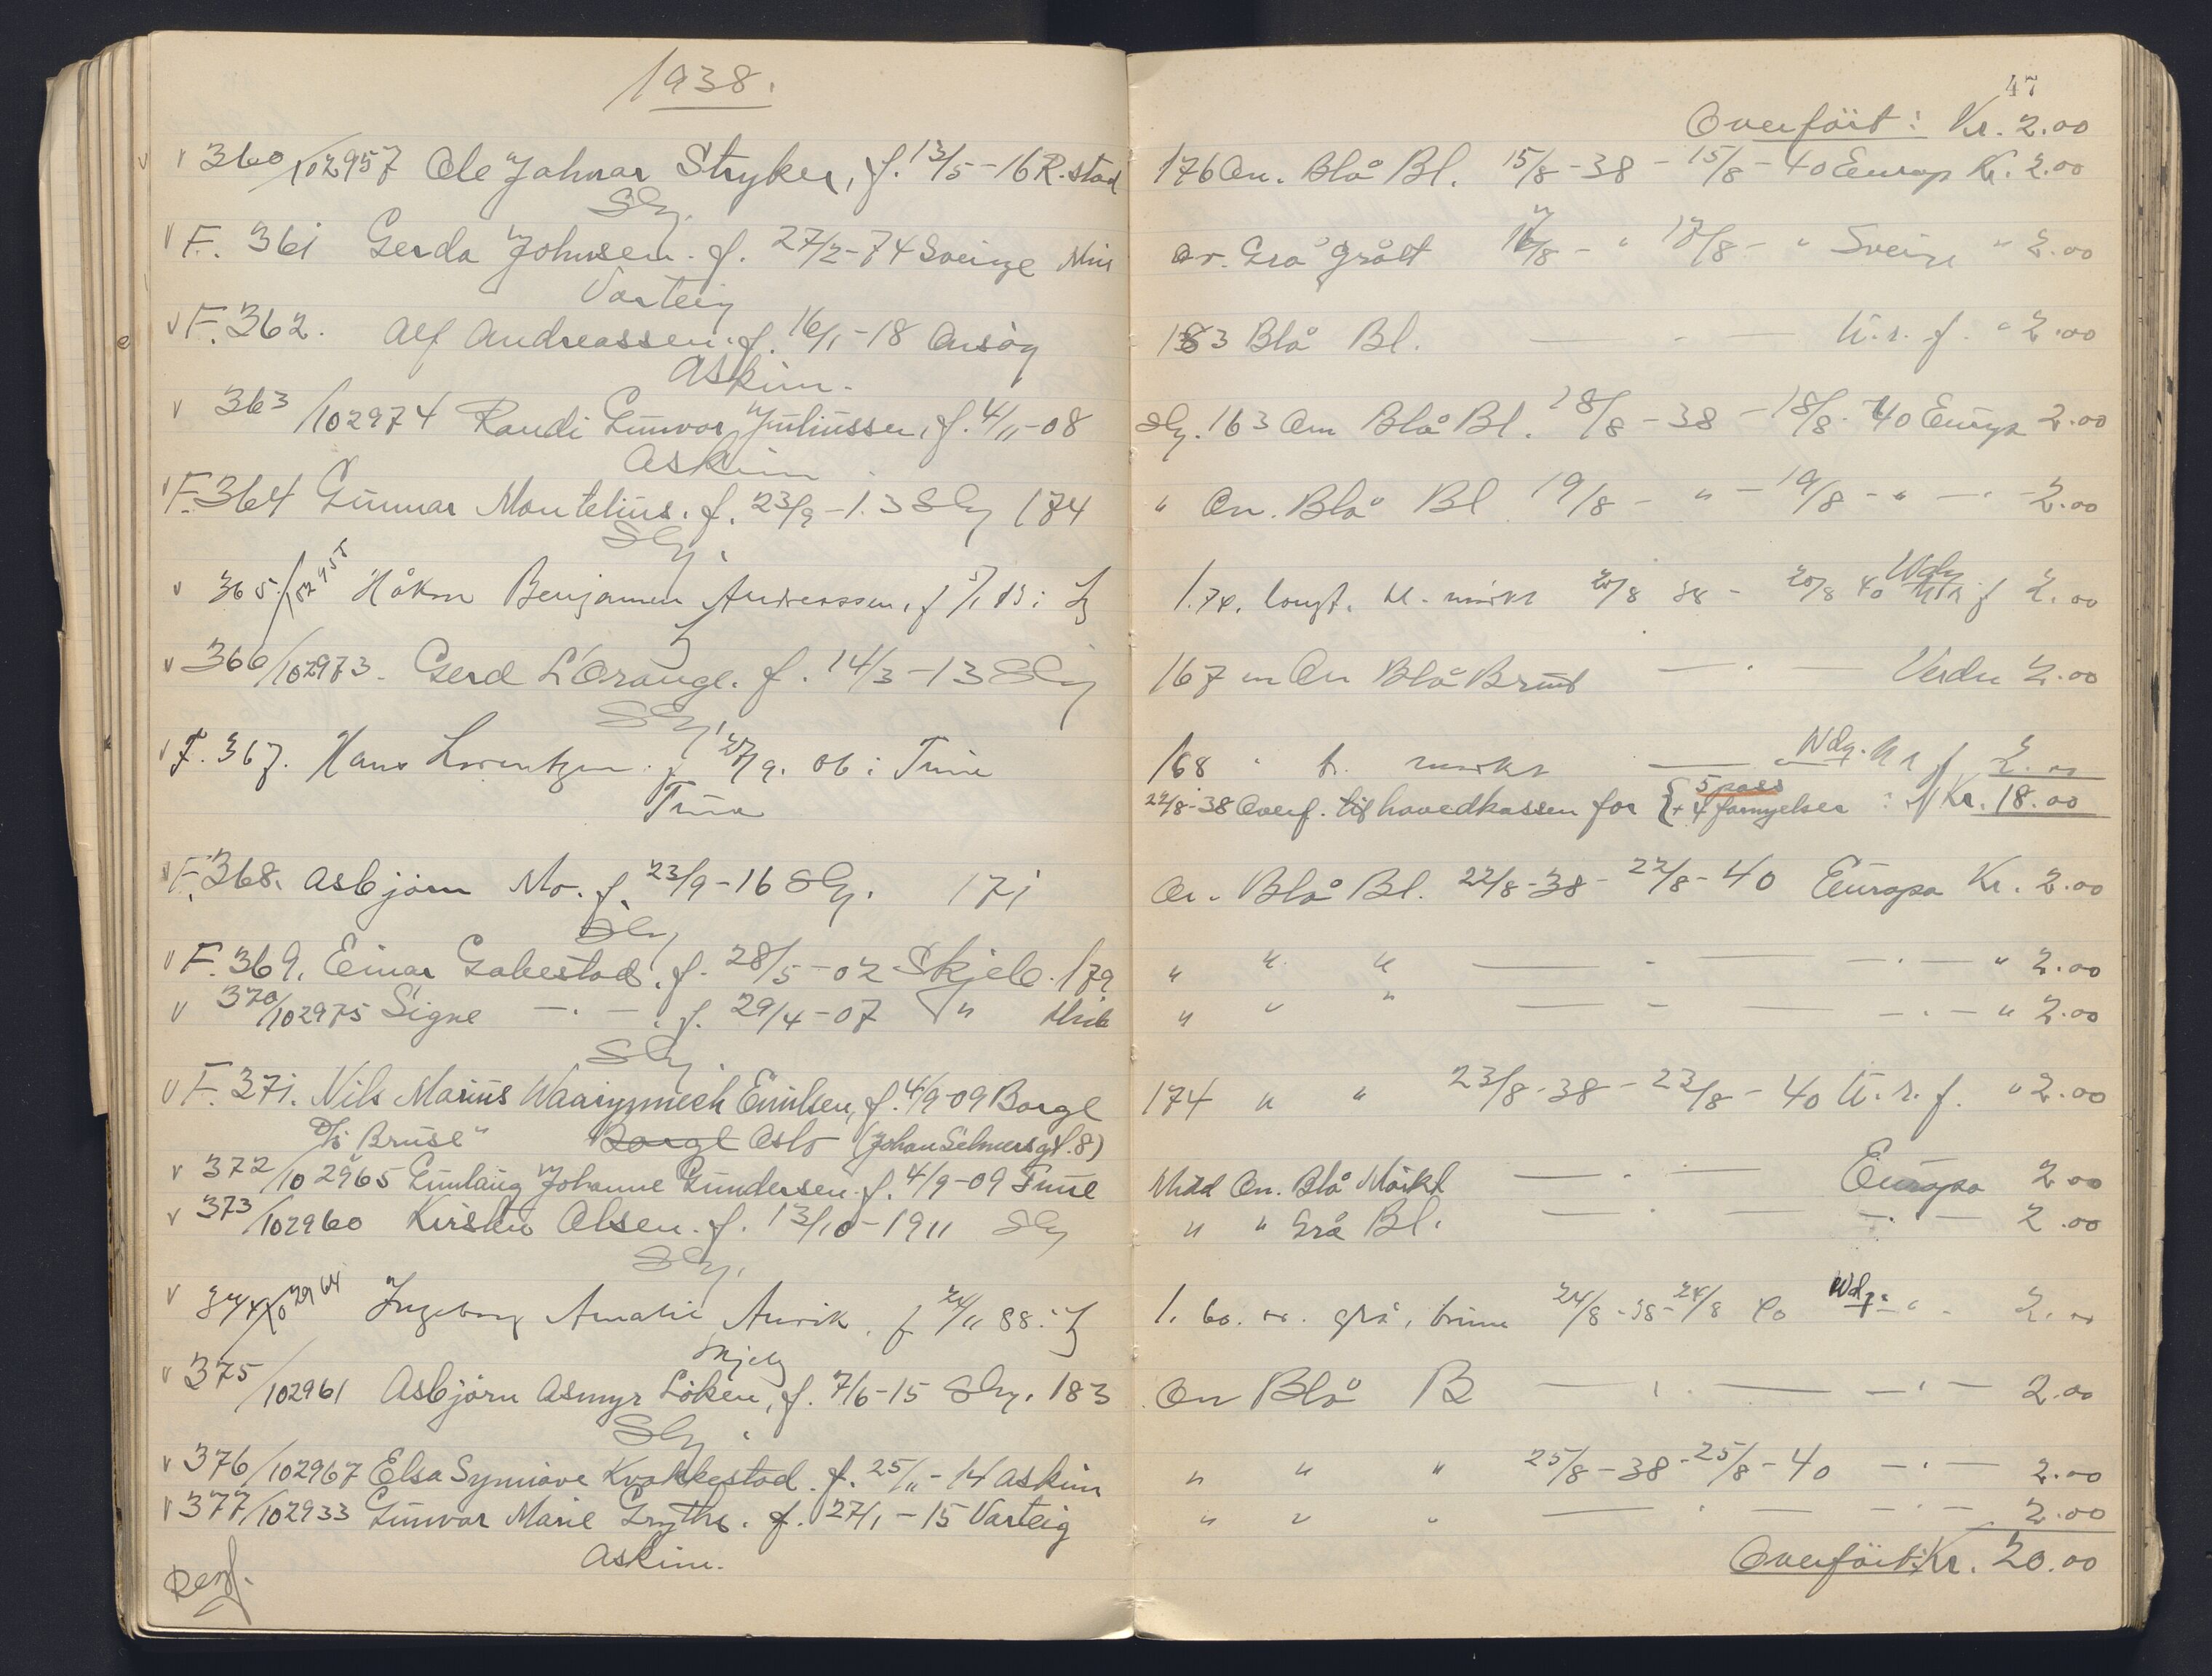 1938.
360/102957 Ole Jahnar Stryker, f. 13/5-16 R.stad
Sbg.
F. 361 Gerda Johnsen. f. 27/2-74 Sverige Mid
Varteig
F. 362. Alf Andreassen. f. 16/1-18 Onsøy
Askim.
363/102974 Randi Gunvor Juliussen, f. 4/11-08
Askim
F. 364 Gunnar Montelius. f. 23/9-13 Sbg 174
Sbg.
365/ Håkon Benjamin Andreassen, f 5/1 13 i
366/102973. Gerd L'Orange. f. 14/3-13 Sbg
Sbg.
F. 367. Hans Lorentzen. f 27/9. 06 i Tune
Tune
F. 368. Asbjørn Mo. f. 23/9-16 Sbg. 171
Sbg
F. 369. Einar Gabestad. f. 28/5-02 Skjeb. 179
370/102975 Signe —.—. f. 29/4-07 " Mid
Sbg.
F. 371. Nils Marius Emilsen, f. 4/9-09 Borge
D/S Bruse" Borge Oslo (Johan Selmersgt. 8)
372/102965 Gunlaug Johanne Gundersen. f. 4/9-09 Tune
373/102960 Kirsten Olsen. f. 13/10-1911 Sbg
Sbg.
374/102964 Ingeborg Amalie Amrik. f 24/11 88 i
Skjeb
375/102961 Asbjørn Asmyr Løken, f. 7/6-15 Sbg. 183
Sbg.
376/102967 Elsa Synnøve Kvakkestad. f. 25/11-14 Askim
377/102933 Gunvor Marie Grythe. f. 27/1-15 Varteig
Askim.
47
Overført: Kr. 2.00
176 On. Blå Bl. 15/8-38 - 15/8-40 Europ Kr. 2.00
Or. Grå Grått 17/8- " 17/8- " Sverige " 2.00
183 Blå Bl. — . — U.r.f. " 2.00
Sbg. 163 On Blå Bl. 18/8-38 - 18/8-40 Europa 2.00
" On. Blå Bl 19/8- " - 19/8- " —.— 2.00
1.74. bl. mørkt 20/8 38 - 20/8 40 Wdg f 2.00
167 m On Blå Brunt — . — Verden 2.00
168 " b. mørkt — Wdg. U r f 2.00
22/8-38 Overf. til hovedkassen for {5 pass + 4 fornyelser : Kr. 18.00
On. Blå Bl. 22/8-38 - 22/8-40 Europa Kr. 2.00
" " " — - — —.— " 2.00
" " " — - — —.— " 2.00
174 " " 23/8-38 - 23/8-40 U.r.f. " 2.00
Midd On. Blå Mørkt — . — Europa 2.00
" " Grå Bl. — . — —.— 2.00
1. 60. grå, 24/8-38-24/8 40 Wdg. " 2.00
On Blå B — . — —.— 2.00
" " " 25/8-38-25/8-40 —.— 2.00
" " " — . — —.— 2.00
Overført: Kr. 20.00